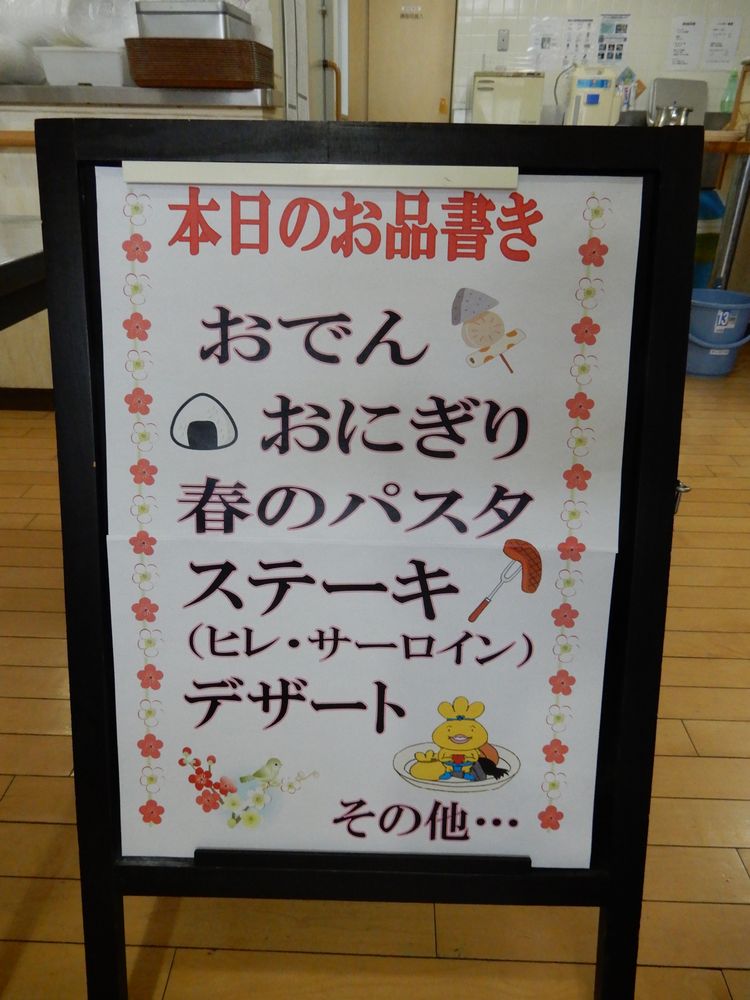 本日のお品書き
おでん
おにぎり
春のパスタ
ステーキ
(ヒレ・サーロイン)
デザート
その他…
13